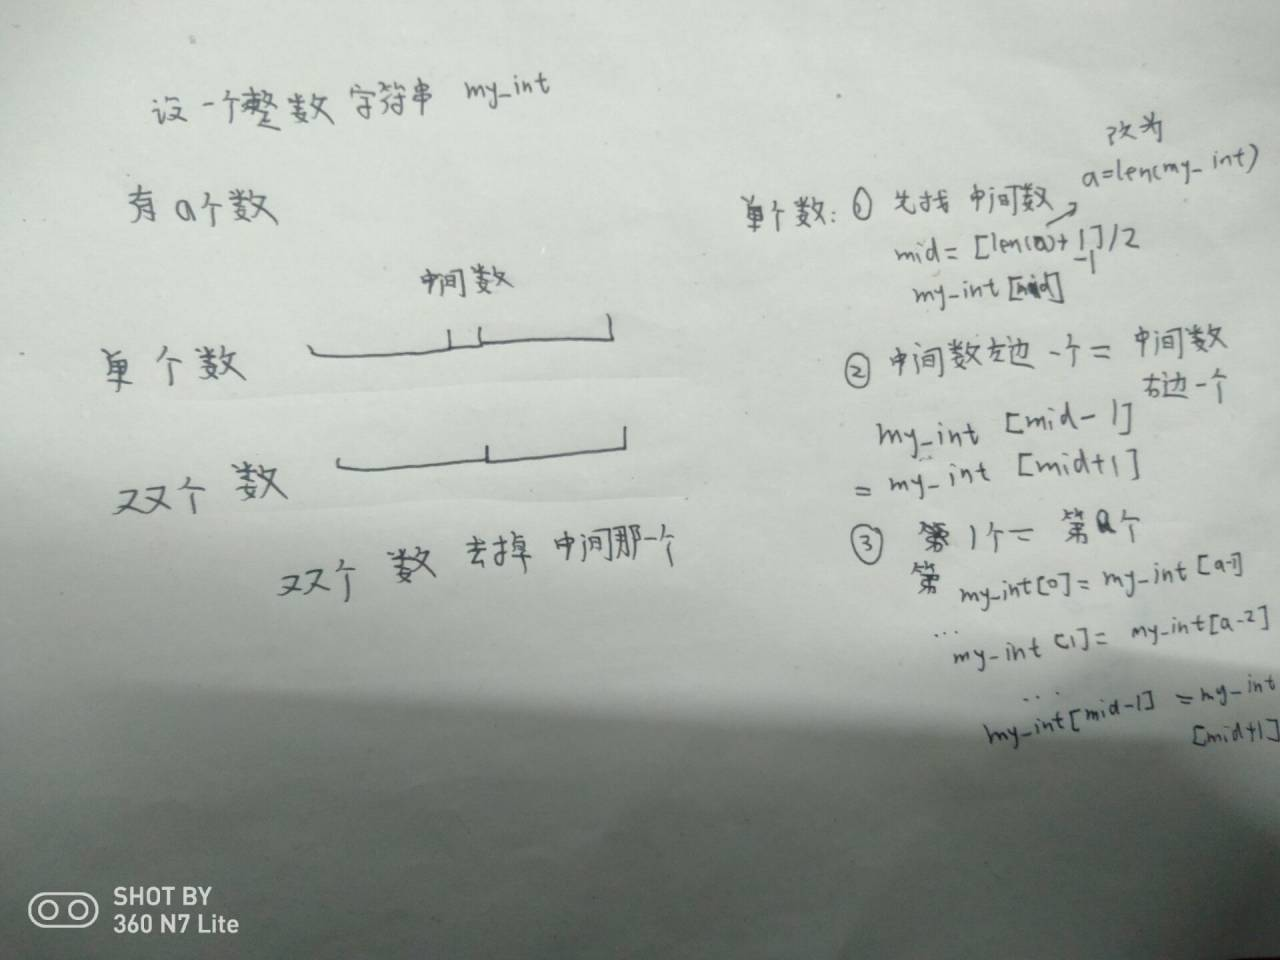 设一个整数字符串 my_int
有a个数
中间数
单个数
双个数
双个数去掉中间那一个
改为
a=len(my_int)
单个数: ① 先找中间数
mid=[len(a)+1]/2
-1
my_int[mid]
② 中间数左边一个=中间数
右边一个
my_int [mid-1]
= my_int [mid+1]
③ 第1个=第a个
第
my_int[0]=my_int[a-1]
...
my_int[1]= my_int[a-2]
...
my_int[mid-1] =my_int
[mid+1]
SHOT BY
360 N7 Lite